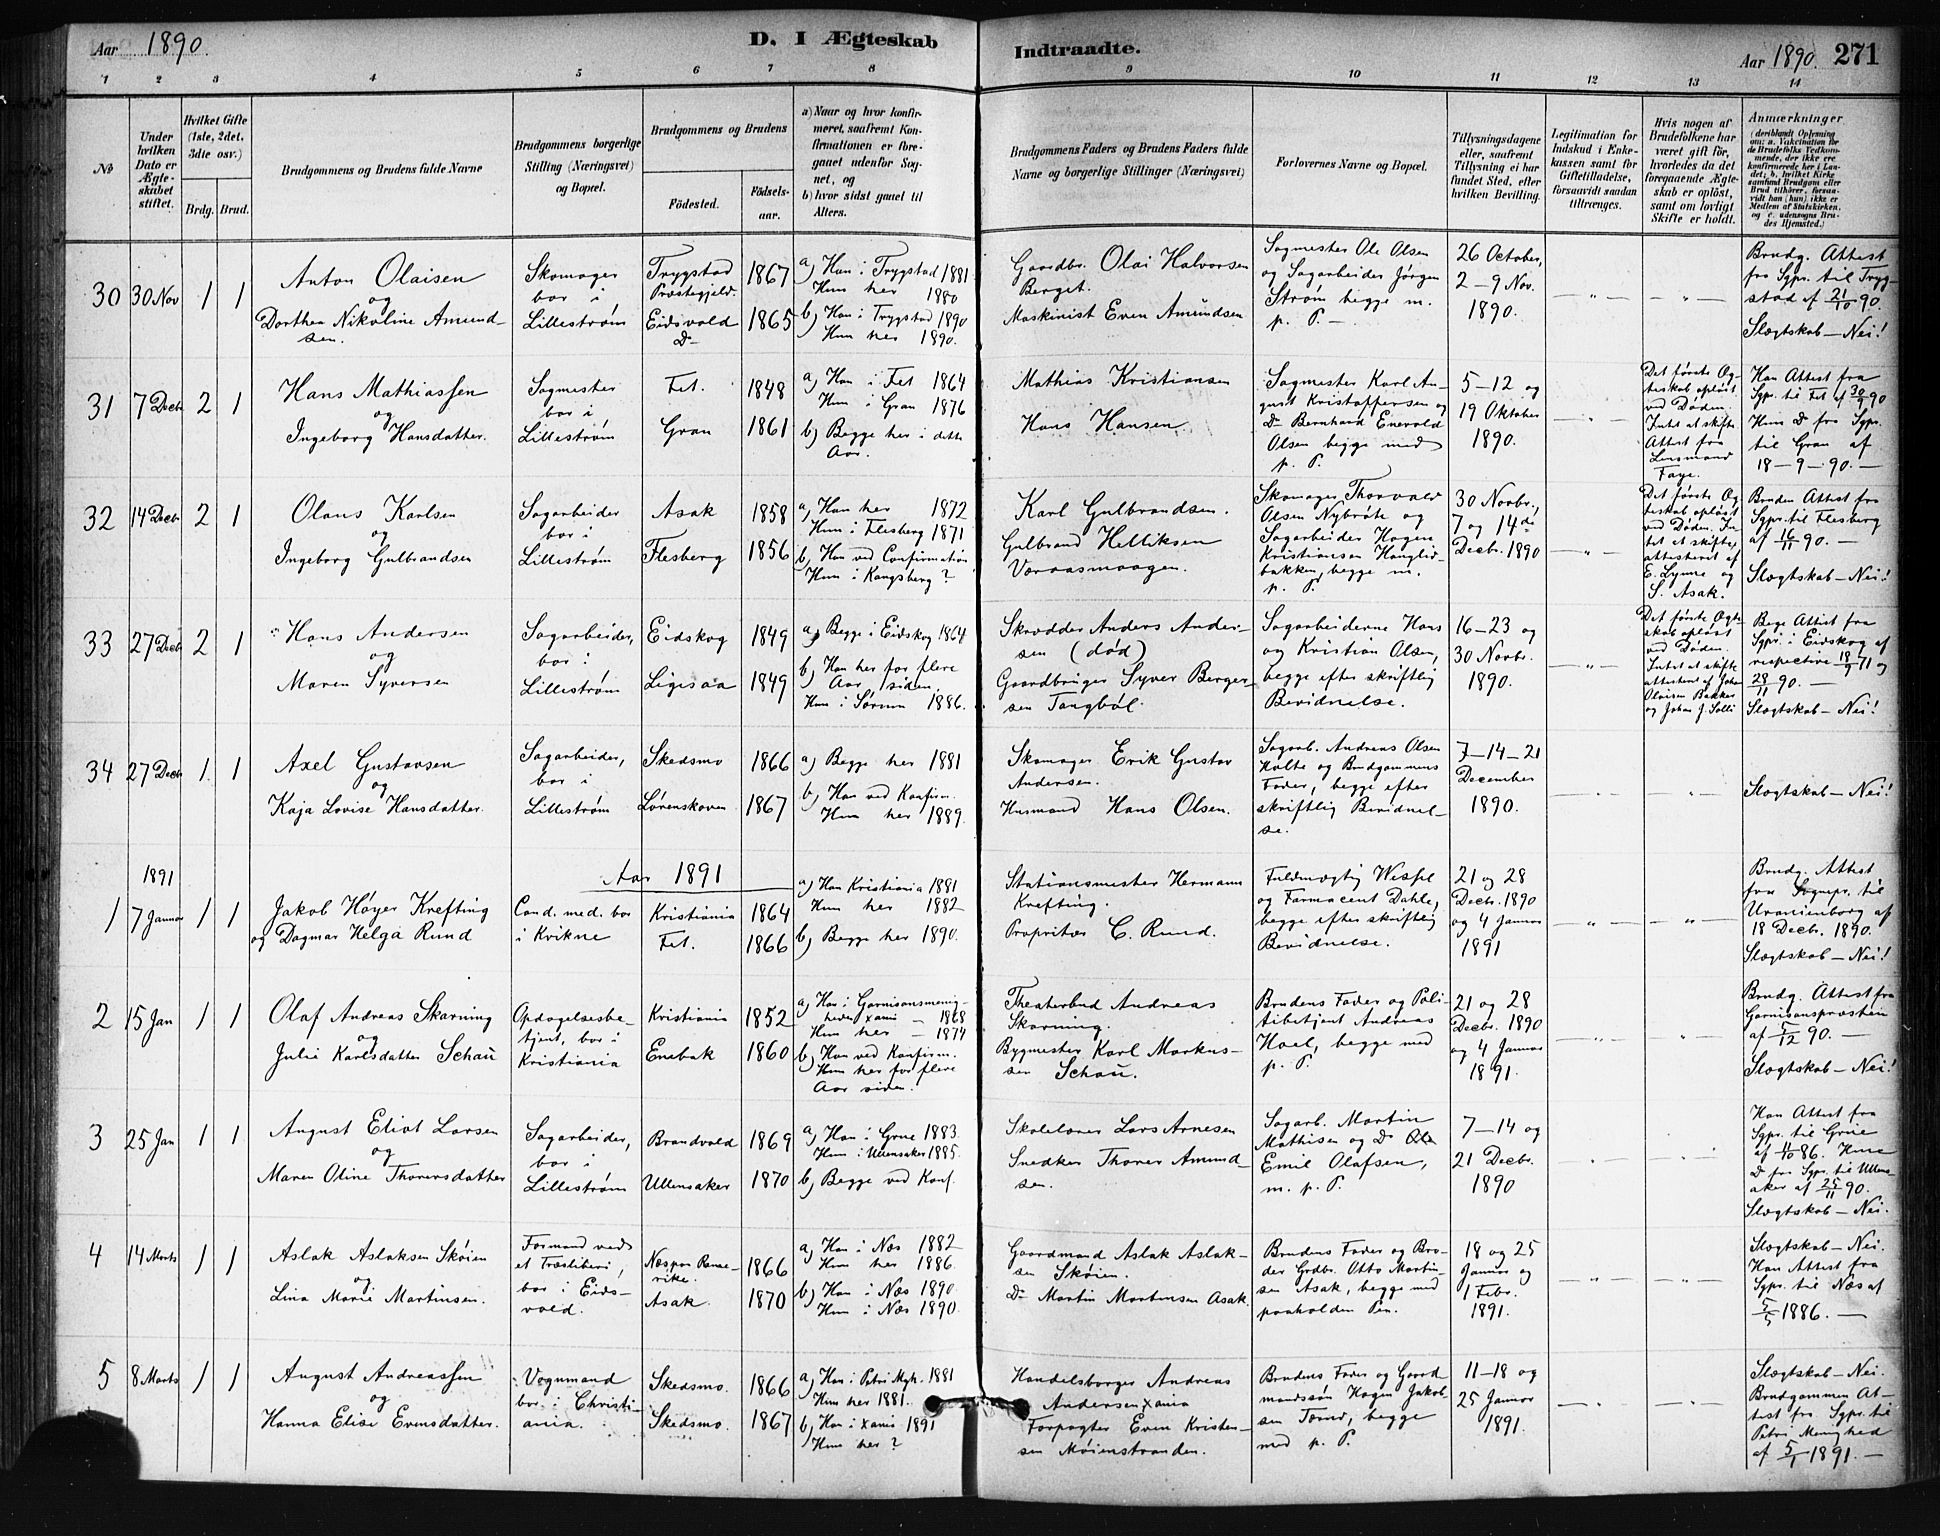 Aar 1890.
D. I Ægteskab
Indtraadte.
Aar 1890. 271
1 2 3 4 5 6 7 8 9 10 11 12 13 14
No
Under hvilken Dato er Ægteskabet stiftet.
Hvilket Gifte (1ste, 2det, 3die osv.)
Brdg. Brud.
Brudgommens og Brudens fulde Navne
Brudgommens borgerlige Stilling (Næringsvei) og Bopæl.
Brudgommens og Brudens
Födested.
Födselsaar.
a) Naar og hvor konfirmeret, saafremt Konfirmationen er foregaaet udenfor Sognet, og
b) hvor sidst gaaet til Alters.
Brudgommens Faders og Brudens Faders fulde Navne og borgerlige Stillinger (Næringsvei)
Forlovernes Navne og Bopæl.
Tillysningsdagene eller, saafremt Tillysning ei har fundet Sted, efter hvilken Bevilling.
Legitimation for Indskud i Enkekassen samt for Giftetilladelse, forsaavidt saadan tiltrænges.
Hvis nogen af Brudefolkene har været gift för, hvorledes da det foregaaende Ægteskab er oplöst, samt om lovligt Skifte er holdt.
Anmærkninger (deriblandt Oplysning om: a. Vakcination for de Brudefolks Vedkommende, der ikke ere konfirmerede her i Landet; b. hvilket Kirkesamfund Brudgom eller Brud tilhører, forsaavidt han (hun) ikke er Medlem af Statskirken, og c. udensogns Brudes Hjemsted.)
30 30 Nov 1 1
Anton Olaisen
og
Dorthea Nikoline Amundsen.
Skomager
bor i
Lillestrøm
Trygstad
Præstegjeld.
Eidsvold
Do
1867
1865
a) Han i Trygstad 1881
Hun her 1880
b) Han i Trygstad 1890
Hun her 1890.
Gaardbr. Olai Halvorsen
Berget.
Maskinist Even Amundsen
Sagmester Ole Olsen
og Sagarbeider Jørgen
Strøm begge m.
p. P. —
26 October,
2 – 9 Nov.
1890.
Brudg. Attest
fra Sgpr. til Trygstad af 21/10 90.
Slægtskab – Nei!
31 7 Decb 2 1
Hans Mathiassen
og
Ingeborg Hansdatter.
Sagmester
bor i
Lillestrøm
Fet.
Gran
1848
1861
a) Han i Fet 1864
Hun i Gran 1876
b) Begge her i dette
Aar.
Mathias Kristiansen
Hans Hansen
Sagmester Karl August Kristoffersen og
Do Bernhard Enevold
Olsen begge med
p. P.
5–12 og
19 Oktober
1890.
Det første Ægteskab opløst
ved Døden.
Intet at skifte
Attest fra
Lensmand
Faye.
Han Attest fra
Sgpr. til Fet af 30/9 90
Hun Do fra Sgpr.
til Gran af
18–9–90. —
32 14 Decb 2 1
Olaus Karlsen
og
Ingeborg Gulbrandsen
Sagarbeider
bor i
Lillestrøm
Asak
Flesberg
1858
1856
a) Han her 1872
Hun i Flesberg 1871
b) Han ved Confirmation
Hun i Kongsberg ?
Karl Gulbrandsen.
Gulbrand Helliksen
Væraasmoagen.
Skomager Thorvald
Olsen Nybråte og
Sagarbeider Hagen
Kristiansen Hauglidbakken, begge m.
p. P.
30 Novbr.,
7 og 14de
Decbr. 1890
Det første Ægteskab opløst
ved Døden. Intet at skifte,
attesteret af
E. Lynne og
S. Asak.
Bruden Attest fra
Sgpr. til Flesberg
af 16/11 90. —
Slægtskab – Nei!
33 27 Decb 2 1
Hans Andersen
og
Maren Syversen
Sagarbeider,
bor i
Lillestrøm
Eidskog
Ligisaa
1849
1849
a) Begge i Eidskog 1864
b) Han her for flere
Aar siden.
Hun i Sørum 1886.
Skrædder Anders Andersen (død)
Gaardbruger Syver Bergersen Tangbøl.
Sagarbeiderne Hans
og Kristian Olsen,
begge efter skriftlig
Bevidnelse.
16–23 og
30 Novbr.
1890.
Det første Ægteskab opløst
ved Døden.
Intet at skifte
attesteret af Johan
Olaisen Bakker
og Johan J. Solli
Bege Attest fra
Sgpr. i Eidskog af
respective 18/9 71 og
28/11 90. —
Slægtskab – Nei!
34 27 Decb 1. 1
Axel Gustavsen
og
Kaja Lovise Hansdatter.
Sagarbeider,
bor i
Lillestrøm
Skedsmo
Lørenskoven
1866
1867
a) Begge her 1881
b) Han ved Konfirm.
Hun her 1889.
Skomager Erik Gustav
Andersen.
Husmand Hans Olsen.
Sagarb. Andreas Olsen
Holte og Brudgommens
Fader, begge efter
skriftlig Bevidnelse.
7–14–21
December
1890.
Slægtskab – Nei!
1891
Aar 1891
1 7 Januar 1 1
Jakob Høyer Krefting
og Dagmar Helga Rund
Cand. med. bor
i Kvikne
Kristiania
Fet.
1864
1866
a) Han Kristiania 1881
Hun her 1882
b) Begge her 1890.
Stationsmester Hermann
Krefting.
Proprietær C. Rund.
Fuldmægtig Wessel
og Farmaceut Dahle,
begge efter skriftlig
Bevidnelse.
21 og 28
Decbr. 1890
og 4 Januar
1891
Brudg. Attest
fra Sognepr. til
Uranienborg af
18 Decbr. 1890.
Slægtskab – Nei!
2 15 Jan 1 1
Olaf Andreas Skarning
og
Julie Karlsdatter Schau
Opdagelsesbetjent, bor i
Kristiania
Kristiania
Enebak
1852
1860
a) Han i Garnisonsmenigheden Xania – 1868
Hun her – 1874
b) Han ved Konfirm.
Hun her for flere
Aar siden.
Theaterbud Andreas
Skarning.
Bygmester Karl Markussen Schau.
Brudens Fader og Politibetjent Andreas
Hoel, begge med
p. P.
21 og 28
Decbr. 1890
og 4 Januar
1891.
Brudg. Attest fra
Garnisonspræsten
af 5/12 90. —
Slægtskab – Nei!
3 25 Jan 1 1
August Eliot Larsen
og
Maren Oline Thorersdatter
Sagarbeider,
bor i
Lillestrøm
Brandvold
Ullensaker
1869
1870
a) Han i Grue 1883.
Hun i Ullensaker 1885.
b) Begge ved Konf.
Skolelærer Lars Arnesen
Snedker Thorer Amundsen.
Sagarb. Martin
Mathisen og Do Ole
Emil Olafsen,
m. p. P.
7–14 og
21 Decbr.
1890
Han Attest fra
Sgpr. til Grue
af 11/10 86. Hun
Do fra Sgpr. til Ullensaker af 25/11 90.
Slægtskab – Nei.
4 14 Marts 1 1
Aslak Aslaksen Skøien
og
Lina Marie Martinsen.
Formand ved
et Træsliberi,
bor i Eidsvold.
Næs paa Romerike.
Asak.
1866
1870
a) Han i Næs 1882
Hun her 1886.
b) Han i Næs 1890
Hun i Næs 1890.
Gaardmand Aslak Aslaksen Skøien.
Do Martin Martinsen Asak.
Brudens Fader og Broder Grdbr. Otto Martinsen Asak, begge med
paaholden Pen.
18 og 25
Januar og
1 Febr.
1891.
Slægtskab – Nei.
Han Attest fra
Sgpr. til Næs af
5/5 1886. —
5 8 Marts 1 1
August Andreassen
og
Hanna Elise Evensdatter.
Vognmand
bor i Christiania.
Skedsmo.
Skedsmo.
1866
1867
a) Han i Petri Mgh. 1881
Hun her 1881.
b) Han i Xania 1891
Hun her ?
Handelsborger Andreas
Andersen Xania
Forpagter Even Kristensen Møienstranden.
Brudens Fader og Gaardmandssøn Hagen Jakobsen Tærud, begge
med p. P.
11–18 og
25 Januar
1891.
Slægtskab – Nei.
Brudgommen Attest fra Sgpr. til
Petri Menighed
af 5/1 1891. —